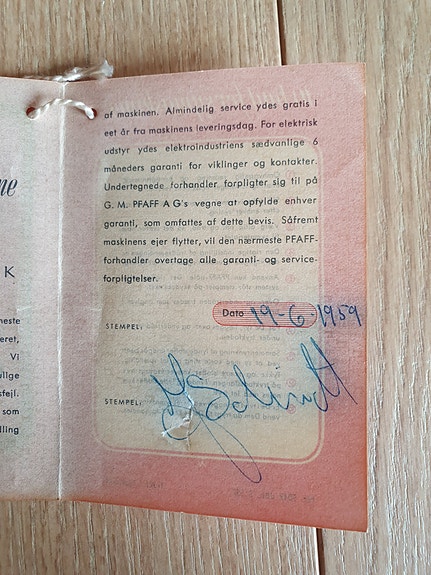 ne
K
neste
eret,
Vi
ulige
sfejl.
som
lling
af maskinen. Almindelig service ydes gratis i
eet år fra maskinens leveringsdag. For elektrisk
udstyr ydes elektroindustriens sædvanlige 6
måneders garanti for viklinger og kontakter.
Undertegnede forhandler forpligter sig til på
G. M. PFAFF A G's vegne at opfylde enhver
garanti, som omfattes af dette bevis. Såfremt
maskinens ejer flytter, vil den nærmeste PFAFF-
forhandler overtage alle garanti- og service-
forpligtelser.
Dato 19-6-1959
STEMPEL:
STEMPEL: